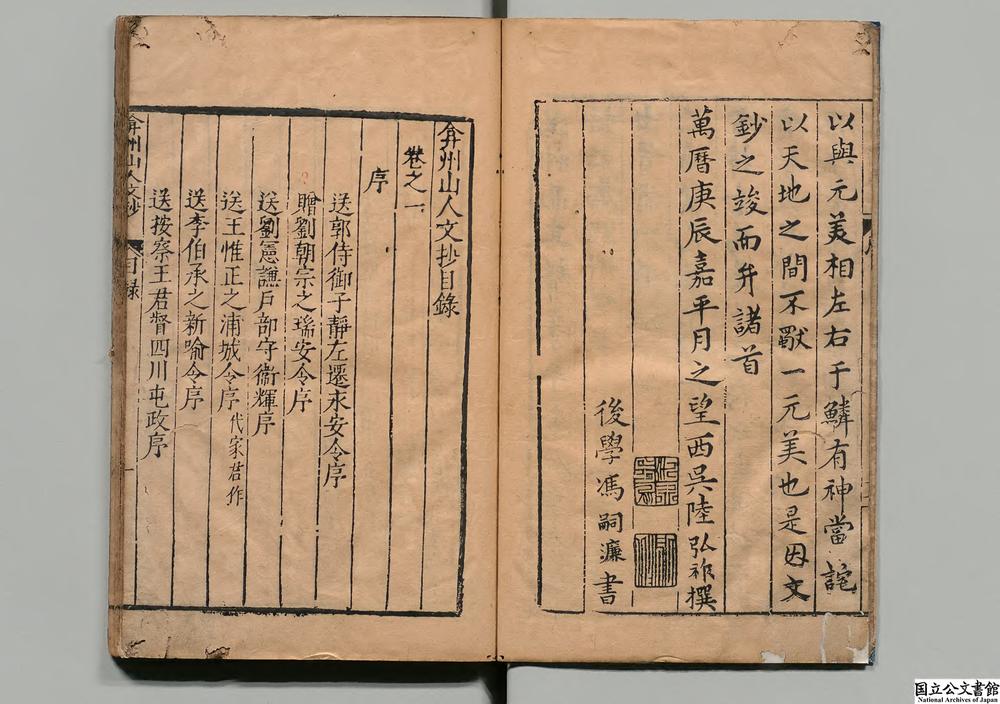 以與元美相左右于鱗有神當詫
以天地之間不厭一元美也是因文
鈔之竣而弁諸首
萬曆庚辰嘉平月之望西吳陸弘祚撰
後學馮嗣濂書
弇州山人文抄目錄
卷之一
序
送郭侍御子靜左遷永安令序
贈劉朝宗之瑞安令序
送劉憲謙戶部守衞輝序
送王惟正之浦城令序代家君作
送李伯承之新喻令序
送按察王君督四川屯政序
弇州山人文抄
目錄
一
国立公文書館
National Archives of Japan